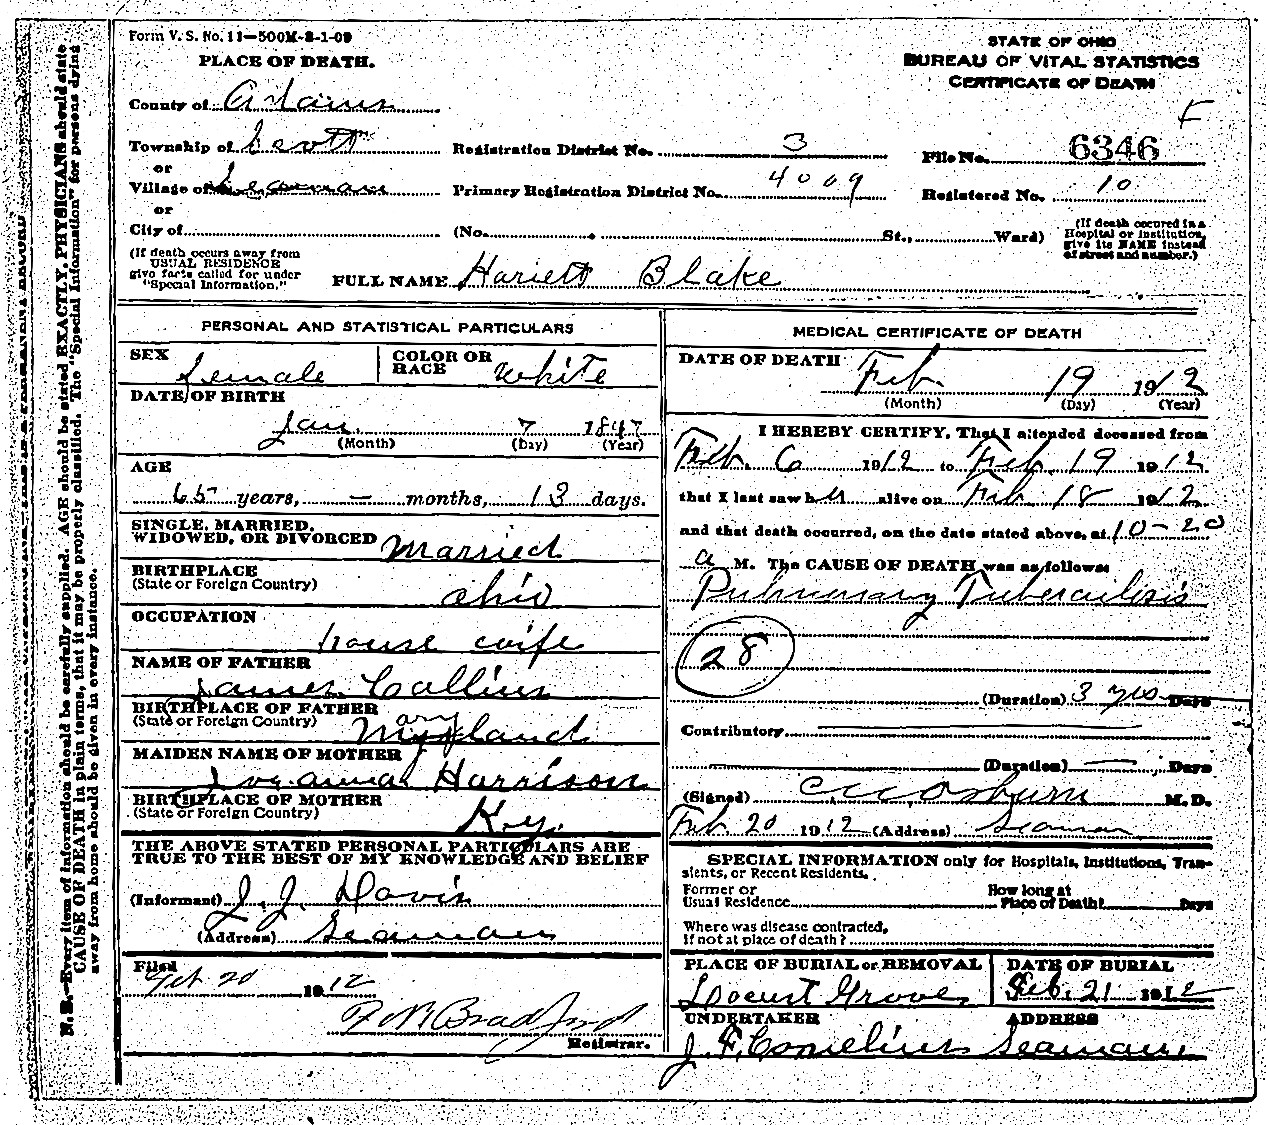 Form V. S. No. 11—500M-8-1-09
PLACE OF DEATH.
STATE OF OHIO
BUREAU OF VITAL STATISTICS
CERTIFICATE OF DEATH
County of Adams
Township of Scott Registration District No. 3 File No. 6346
or
Village of Seaman Primary Registration District No. 4009 Registered No. 10
or
City of (No. St., Ward)
(If death occured in a Hospital or Institution, give its NAME instead of street and number.)
(If death occurs away from USUAL RESIDENCE give facts called for under "Special Information.")
FULL NAME Hariett Blake
PERSONAL AND STATISTICAL PARTICULARS
SEX female
COLOR OR RACE White
DATE OF BIRTH
Jan. 7 1847
(Month) (Day) (Year)
AGE
65 years, — months, 13 days.
SINGLE, MARRIED,
WIDOWED, OR DIVORCED Married
BIRTHPLACE
(State or Foreign Country) Ohio
OCCUPATION
house wife
NAME OF FATHER
James Collins
BIRTHPLACE OF FATHER
(State or Foreign Country) Maryland
MAIDEN NAME OF MOTHER
Joeanna Harrison
BIRTHPLACE OF MOTHER
(State or Foreign Country) Ky.
THE ABOVE STATED PERSONAL PARTICULARS ARE
TRUE TO THE BEST OF MY KNOWLEDGE AND BELIEF
(Informant) J. J. Davis
(Address) Seaman
Filed
Feb 20 1912
Bradford
Registrar.
MEDICAL CERTIFICATE OF DEATH
DATE OF DEATH
Feb. 19 1912
(Month) (Day) (Year)
I HEREBY CERTIFY, That I attended deceased from
Feb. 6 1912 to Feb. 19 1912
that I last saw her alive on Feb 18 1912
and that death occurred, on the date stated above, at 10-20
a M. The CAUSE OF DEATH was as follows:
Pulmonary Tuberculosis
28
(Duration) 3 yrs Days
Contributory
(Duration) — Days
(Signed) Osburn M. D.
Feb 20 1912 (Address) Seaman
SPECIAL INFORMATION only for Hospitals, Institutions, Tran-
sients, or Recent Residents.
Former or
Usual Residence
How long at
Place of Death? Days
Where was disease contracted,
If not at place of death?
PLACE OF BURIAL or REMOVAL
Locust Grove
DATE OF BURIAL
Feb. 21 1912
UNDERTAKER
J. F. Cornelius
ADDRESS
Seaman
N. B.—Every item of information should be carefully supplied. AGE should be stated EXACTLY. PHYSICIANS should state
CAUSE OF DEATH in plain terms, that it may be properly classified. The "Special Information" for persons dying
away from home should be given in every instance.